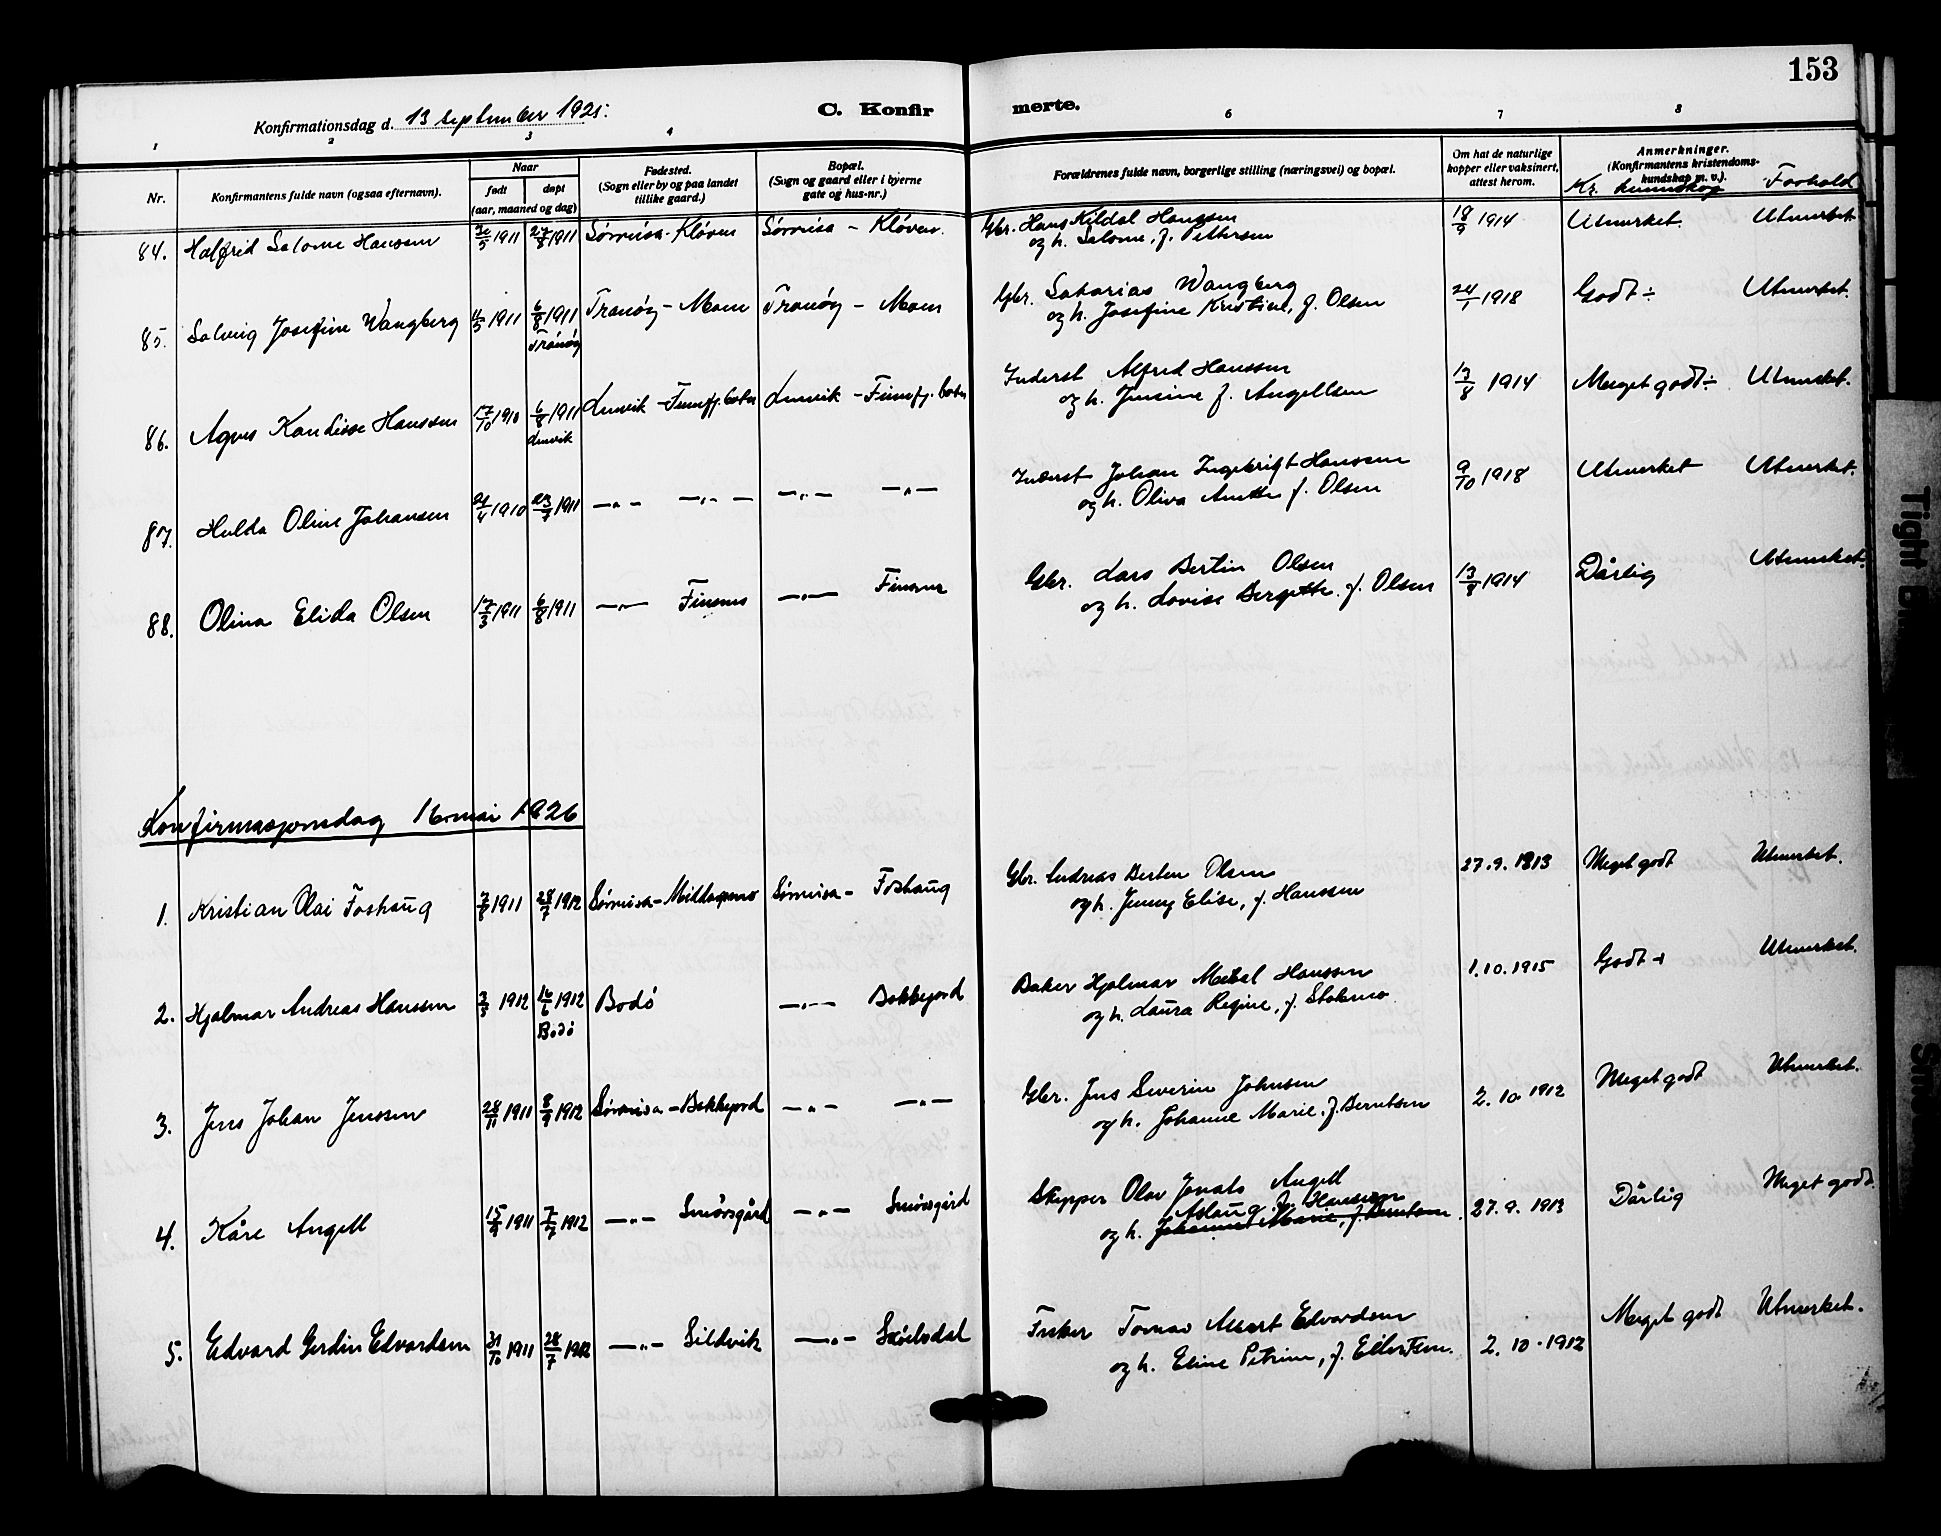 153
Konfirmationsdag d. 13 september 1925.
C. Konfirmerte.
1 2 3 4 6 7 8
Nr.
Konfirmantens fulde navn (ogsaa efternavn).
Naar
født
døpt
(aar, maaned og dag)
Fødested.
(Sogn eller by og paa landet
tillike gaard.)
Bopæl.
(Sogn og gaard eller i byerne
gate og hus-nr.)
Forældrenes fulde navn, borgerlige stilling (næringsvei) og bopæl.
Om hat de naturlige
kopper eller vaksinert,
attest herom.
Anmerkninger.
(Konfirmantens kristendoms-
kundskap m. v.).
Kr. kunnskap Forhold
84. Halfrid Salome Hanssen 1911 27/8 1911 Sørreisa - Kløven Sørreisa - Kløven. Gbr. Hans Kildal Hanssen 18/9 1914 Utmerket. Utmerket.
og h. Salome, f. Pettersen
85. Solveig Josefine Wangberg 1911 6/8 1911 Tranøy - Moen Tranøy - Moen Gbr. Sakarias Wangberg 24/1 1918 Godt ÷ Utmerket.
Tranøy
og h. Josefine Kristine, f. Olsen
86. Agnes Kandisse Hanssen 17/10 1910 6/8 1911 Lenvik - Finnfj. botn Lenvik - Finnfj. botn Inderst Alfred Hanssen 13/8 1914 Meget godt ÷ Utmerket.
Lenvik
og h. Jensine f. Angellsen
87. Hulda Oline Johansen 24/4 1910 23/7 1911 —"— —"— —"— —"— Inderst Johan Ingebrigt Hanssen 9/10 1918 Utmerket Utmerket.
og h. Oliva Anette f. Olsen
88. Olina Elida Olsen 17/3 1911 6/8 1911 —"— Finsnes —"— Finsnes Gbr. Lars Bertin Olsen 13/8 1914 Dårlig Utmerket.
og h. Lovise Bergette f. Olsen
Konfirmasjonsdag 16 mai 1926
1. Kristian Olai Foshaug 1911 28/7 1912 Sørreisa - Middagsnes Sørreisa - Foshaug Gbr. Andreas Berten Olsen 27.9.1913 Meget godt Utmerket.
og h. Jenny Elise, f. Hanssen
2. Hjalmar Andreas Hanssen 3/3 1912 16/6 1912 Bodø —"— Bakkejord Baker Hjalmar Meibal Hanssen 1.10.1915 Godt + Utmerket.
Bodø
og h. Laura Regine, f. Stokmo
3. Jens Johan Jenssen 28/11 1911 8/9 1912 Sørreisa - Bakkejord —"— —"— Gbr. Jens Severin Johnsen 2.10.1912 Meget godt Utmerket.
og h. Johanne Marie f. Berntsen
4. Kåre Angell 1911 7/7 1912 —"— Smørsgård —"— Smørsgård Skipper Olav Jonats Angell 27.9.1913 Dårlig Meget godt.
Aslaug f. Hanssen
og h. Johanne Marie, f. Berntsen.
5. Edvard Gerdin Edvardsen 31/10 1911 28/7 1912 —"— Sildvik —"— Skøelvdal Fisker Tomas Albert Edvardsen 2.10.1912 Meget godt Utmerket.
og h. Eline Petrine, f. Eilertsen.
Tight B